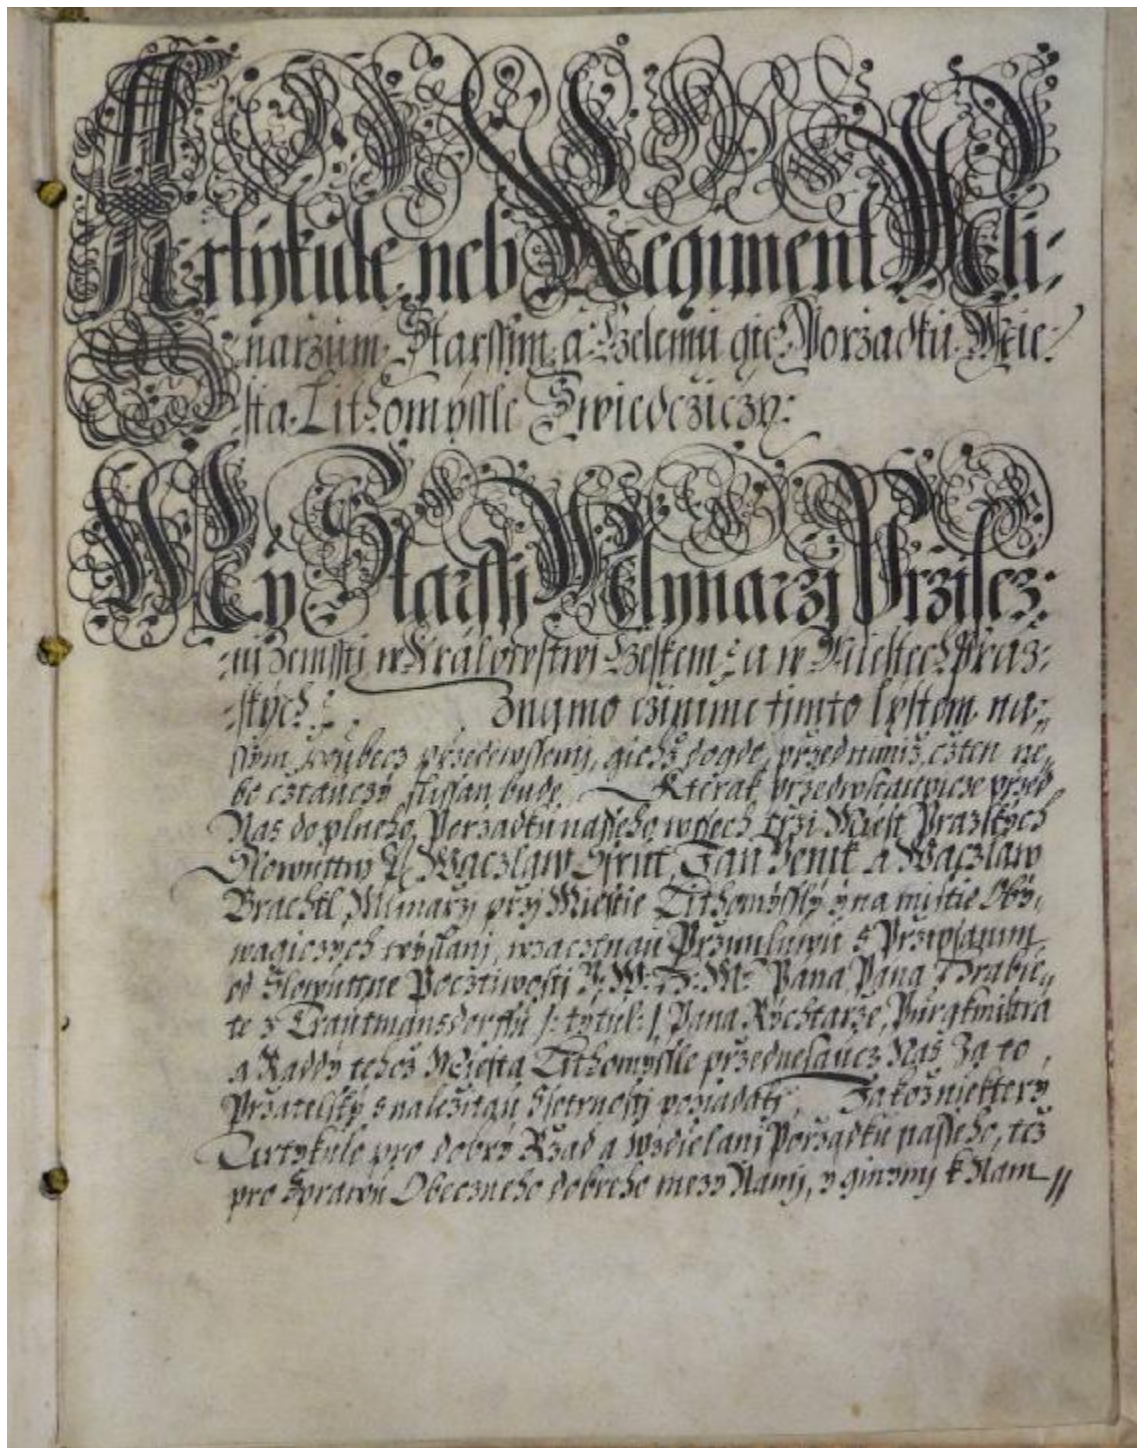 Artykule neb Regiment Mli:
:narzum Starssim a Czelemu gich Porzadku Mie:
:sta Lithomyssle Swiedcziczy:
My Starssi Mlynarzi Przisez:
:ni Zemssti w Kralowstwi Czeskem: a w Miestech Praz:
:skych: Znamo czinime timto lystem na:
ssym wubecz przedewssemi, gichz dogde, przed nimiz czten ne:
bo cztauczy slissan bude Kterak przedwstaupicze przed
Nas do plneho Porzadku nasseho wssech trzi Miest Prazskych
Slowuttny Waczlaw Jan Benik a Waczlaw
Brachtl Mlinarzy przy Miestie Lithomyssly y na mistie Oby:
wagiczych wyslani, wzacznau Przimluwu s Przipsanim
od Slowuttne Pocztiwosti Pana Pana Hrabie
te z Trautmansdorffu /: tytul: / Pana Rychtarze, Purgkmistra
a Raddy tehoz Miesta Lithomyssle przednesaucz Nas za to
Przatelsky s nalezitau Ssetrnosti poziadati, Jakozniektery
Artykule pro dobry Rzad a wzdielani Porzadku nasseho, tez
pro Sprawu Obeczneho dobreho mezy Namy, y ginymi k Nam